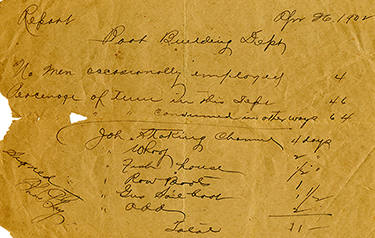 Report Apr 26, 1902
Boat Building Dept
No men occasionally employed 4
Percenage of time in this Dept 46
" " consumed in other ways 64
Job. Staking Channel 4 days
" Wharf 2 "
" Fish house 1/2 "
" Row Boat 1 "
" Sail boat 1 1/2
" Odd 2 "
Total 11 -
Signed